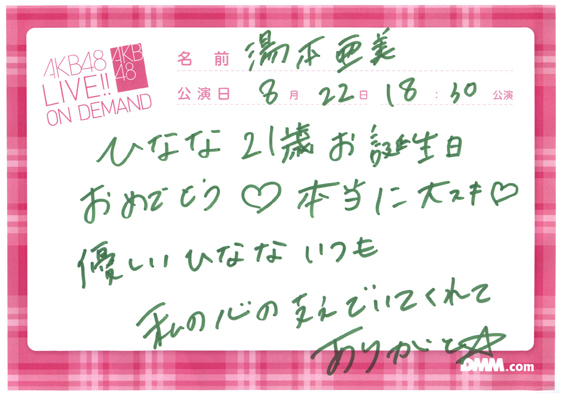 AKB48
LIVE!!
ON DEMAND
AKB
48
名前 湯本亜美
公演日 8月22日 18:30公演
ひなな 21歳 お誕生日
おめでとう♡ 本当に大スキ♡
優しい ひなな いつも
私の心の支えでいてくれて
ありがと☆
DMM.com